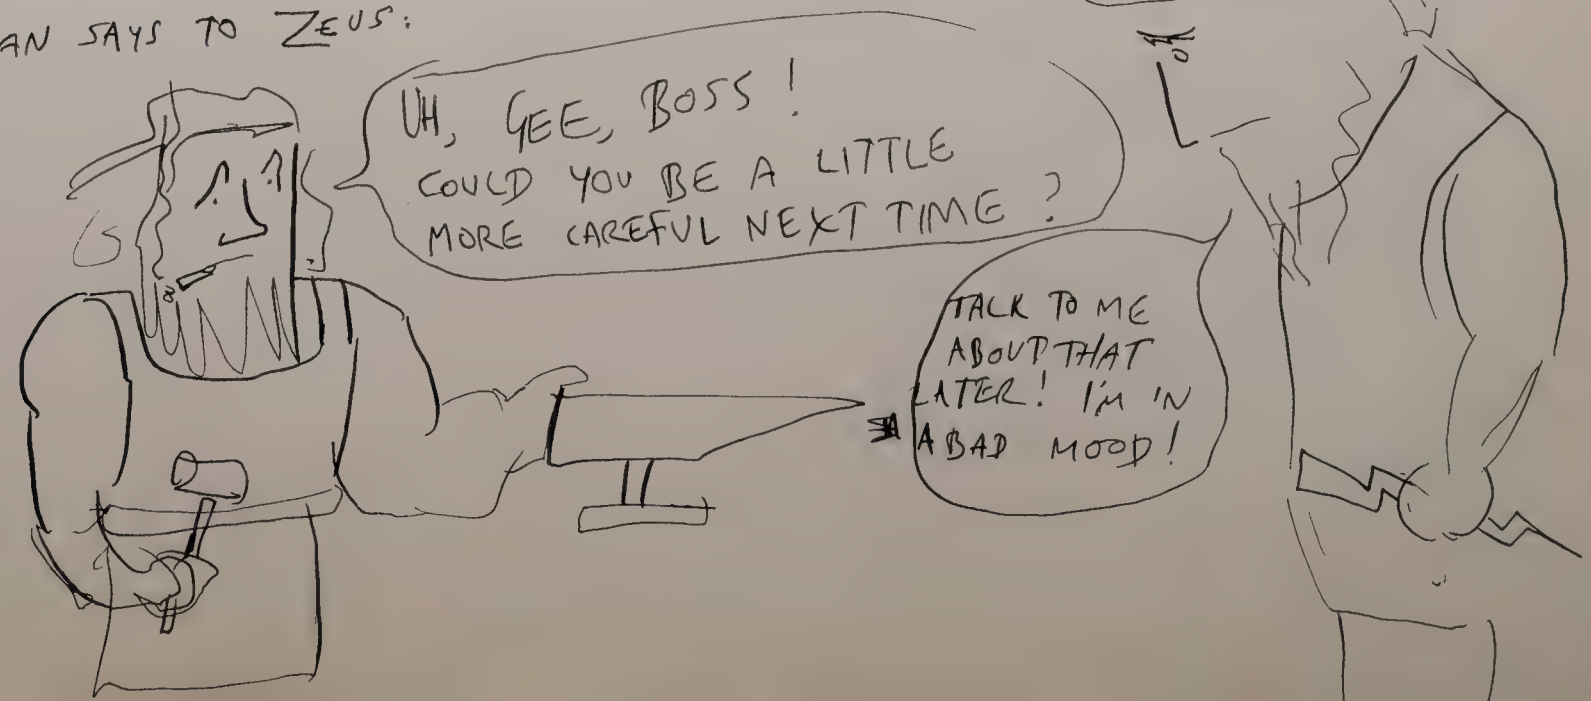 SAYS TO ZEUS:
UH, GEE, BOSS!
COULD YOU BE A LITTLE
MORE CAREFUL NEXT TIME?
TALK TO ME
ABOUT THAT
LATER! I'M IN
A BAD MOOD!